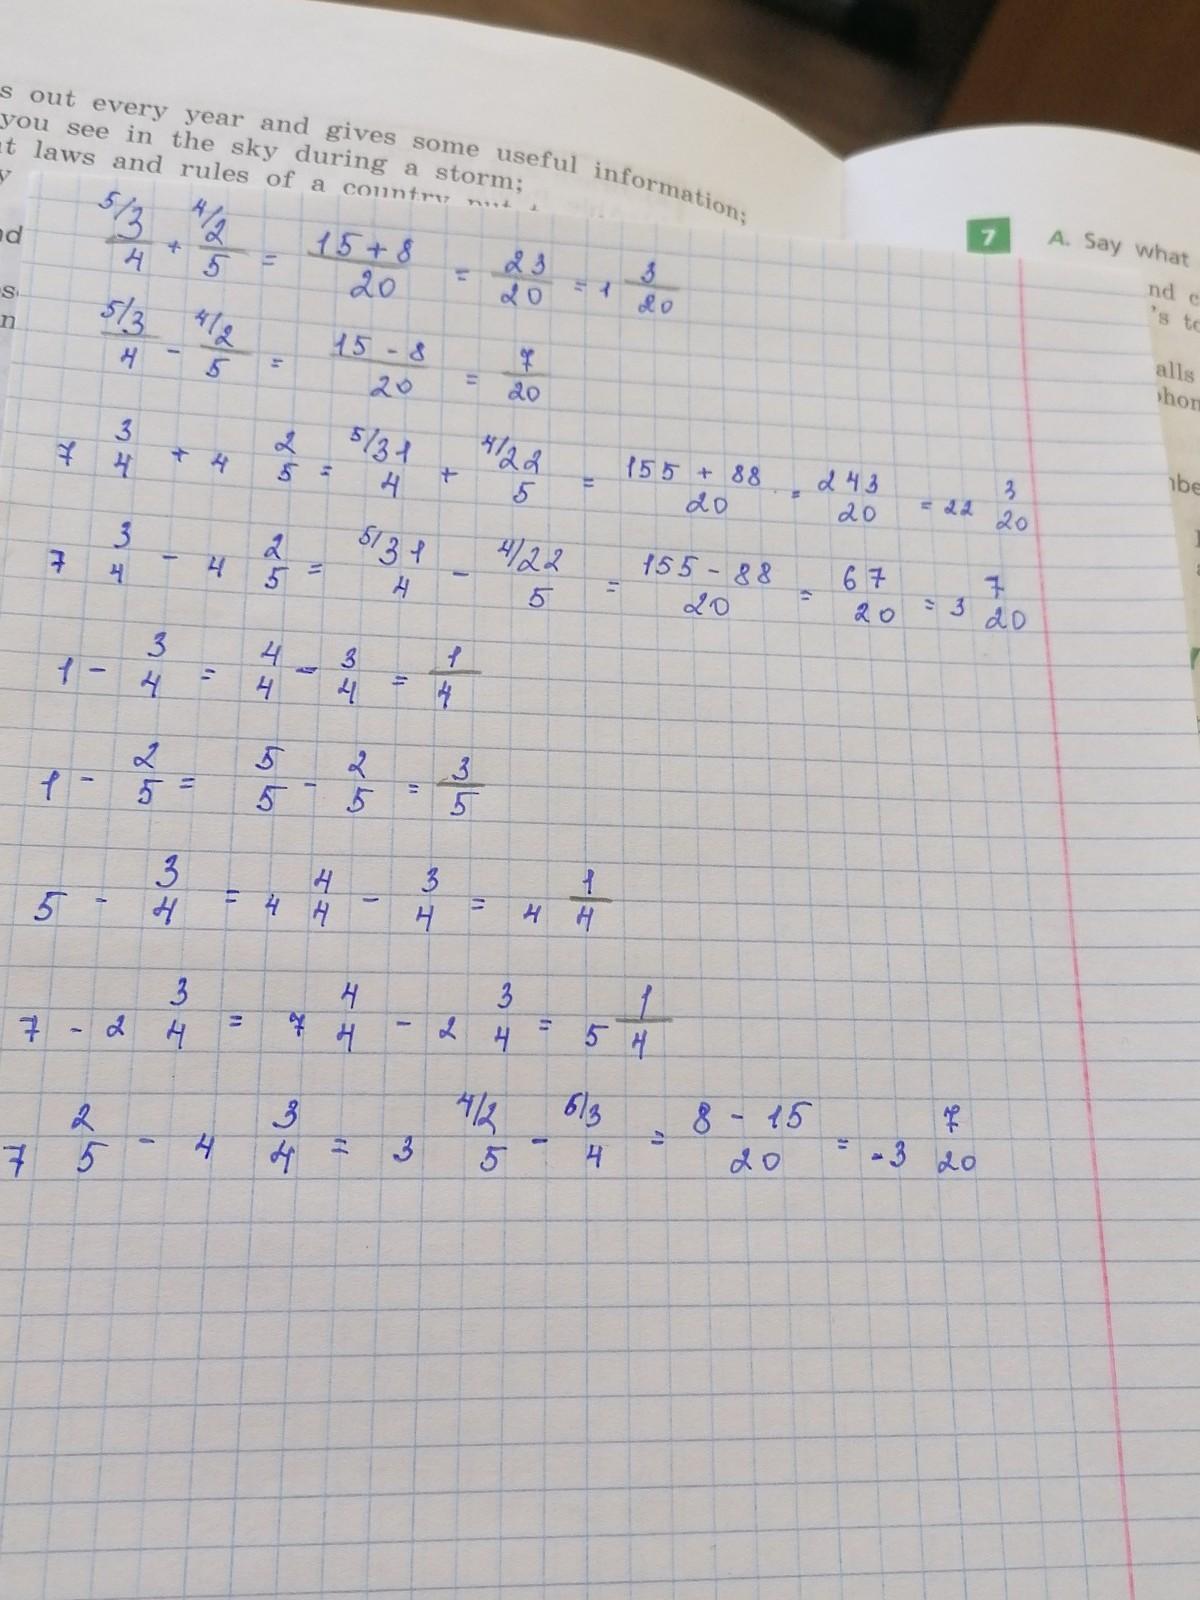 s out every year and gives some useful information;
you see in the sky during a storm;
t laws and rules of a country
y
nd
n
7 A. Say what
nd c
's to
alls
phon
5/3/4 + 4/2/5 = 15 + 8/20 = 23/20 = 1 3/20
5/3/4 - 4/2/5 = 15 - 8/20 = 7/20
7 3/4 + 4 2/5 = 5/31/4 + 4/22/5 = 155 + 88/20 = 243/20 = 22 3/20
7 3/4 - 4 2/5 = 5/31/4 - 4/22/5 = 155 - 88/20 = 67/20 = 3 7/20
1 - 3/4 = 4/4 - 3/4 = 1/4
1 - 2/5 = 5/5 - 2/5 = 3/5
5 - 3/4 = 4 4/4 - 3/4 = 4 1/4
7 - 2 3/4 = 7 4/4 - 2 3/4 = 5 1/4
7 2/5 - 4 3/4 = 3 4/2/5 - 5/3/4 = 8 - 15/20 = -3 7/20